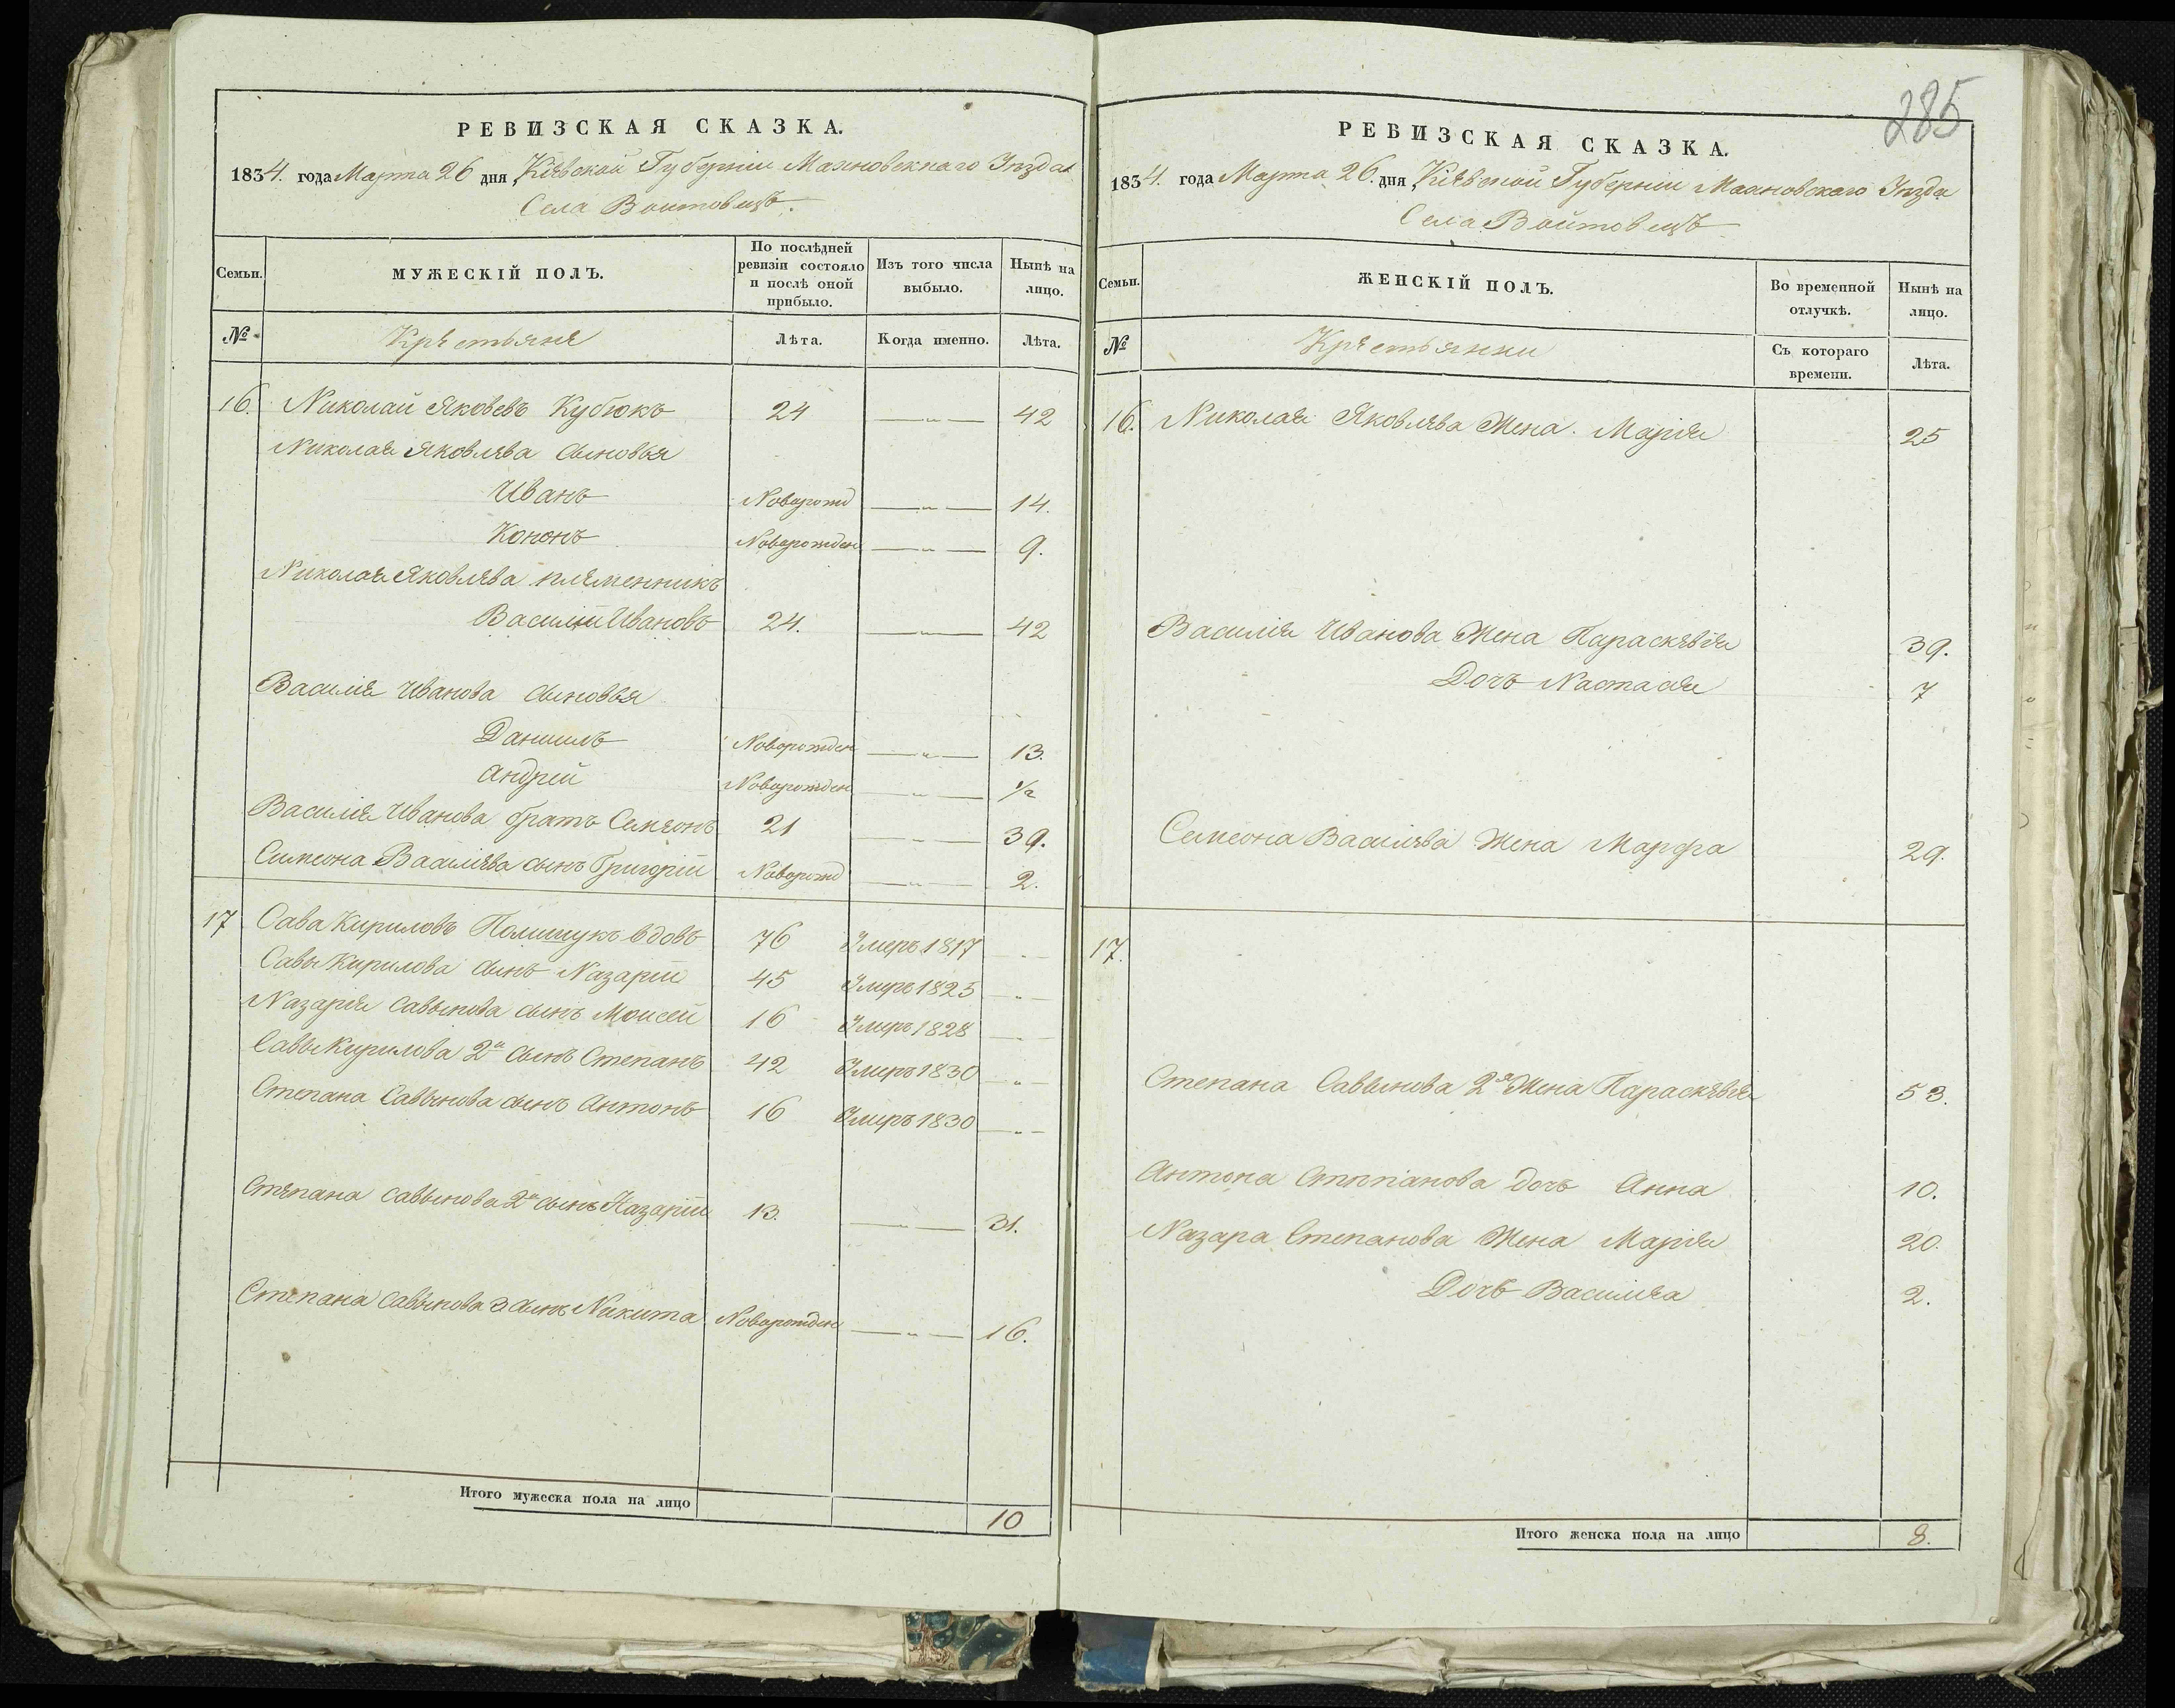 РЕВИЗСКАЯ СКАЗКА.
1834. года Марта 26 дня Кіевской Губерніи Махновскаго Уѣзда
Села Войтовецъ.
Семьи. МУЖЕСКІЙ ПОЛЪ. По послѣдней ревизіи состояло и послѣ оной прибыло. Изъ того числа выбыло. Нынѣ на лицо.
№ Крестьяне Лѣта. Когда именно. Лѣта.
16. Николай Яковевъ Кубюкъ 24 —„— 42
Николая Яковлева сыновья
Иванъ Новорожд —„— 14.
Кононъ Новорожден —„— 9.
Николая Яковлева племенникъ
Василій Ивановъ 24. —„— 42
Василія Иванова сыновья
Даниилъ Новорожден —„— 13.
Андрей Новорожден —„— 1/2
Василія Иванова братъ Семеонъ 21 —„— 39.
Симеона Василіева сынъ Григорій Новорожд —„— 2.
17 Сава Кириловъ Полищукъ вдовъ 76 Умеръ 1817 —„—
Савы Кирилова сынъ Назарій 45 Умеръ 1825 —„—
Назарія Савынова сынъ Моисей 16 Умеръ 1828 —„—
Савы Кирилова 2й сынъ Степанъ 42 Умеръ 1830 —„—
Степана Савынова сынъ Антонъ 16 Умеръ 1830 —„—
Степана Савынова 2й сынъ Назарій 13. —„— 31.
Степана Савынова 3 сынъ Никита Новорожден —„— 16.
Итого мужеска пола на лицо 10
285
РЕВИЗСКАЯ СКАЗКА.
1834. года Марта 26. дня Кіевской Губерніи Махновскаго Уѣзда
Села Войтовецъ
Семьи. ЖЕНСКІЙ ПОЛЪ. Во временной отлучкѣ. Нынѣ на лицо.
№ Крестьянки Съ котораго времени. Лѣта.
16. Николая Яковлева Жена. Марія 25
Василія Иванова Жена Параскевія 39.
Дочъ Настасія 7
Семеона Василіева Жена Марфа 29.
17.
Степана Савынова 2я Жена Параскевія 53.
Антона Степанова дочъ Анна 10.
Назара Степанова Жена Марія 20.
Дочъ Василіса 2.
Итого женска пола на лицо 8.